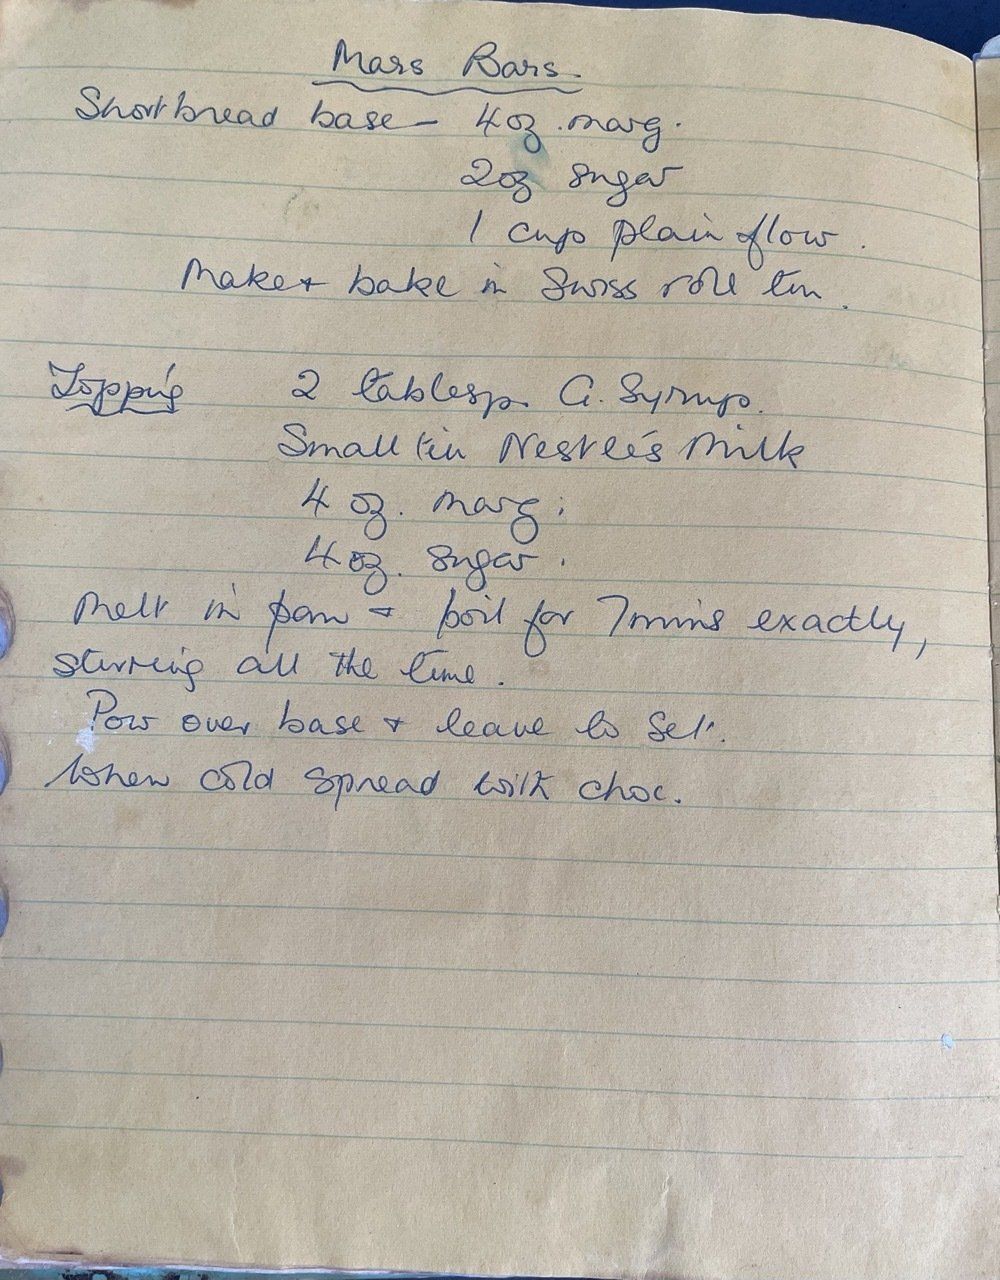 Mars Bars.
Shortbread base - 4oz. marg.
2oz sugar
1 cup plain flour.
Make + bake in Swiss roll tin.
Topping 2 tablesp. G. Syrup.
Small tin Nestle's Milk
4 oz. marg.
4oz. sugar.
Melt in pan + boil for 7mins exactly,
stirring all the time.
Pour over base + leave to set.
When cold spread with choc.